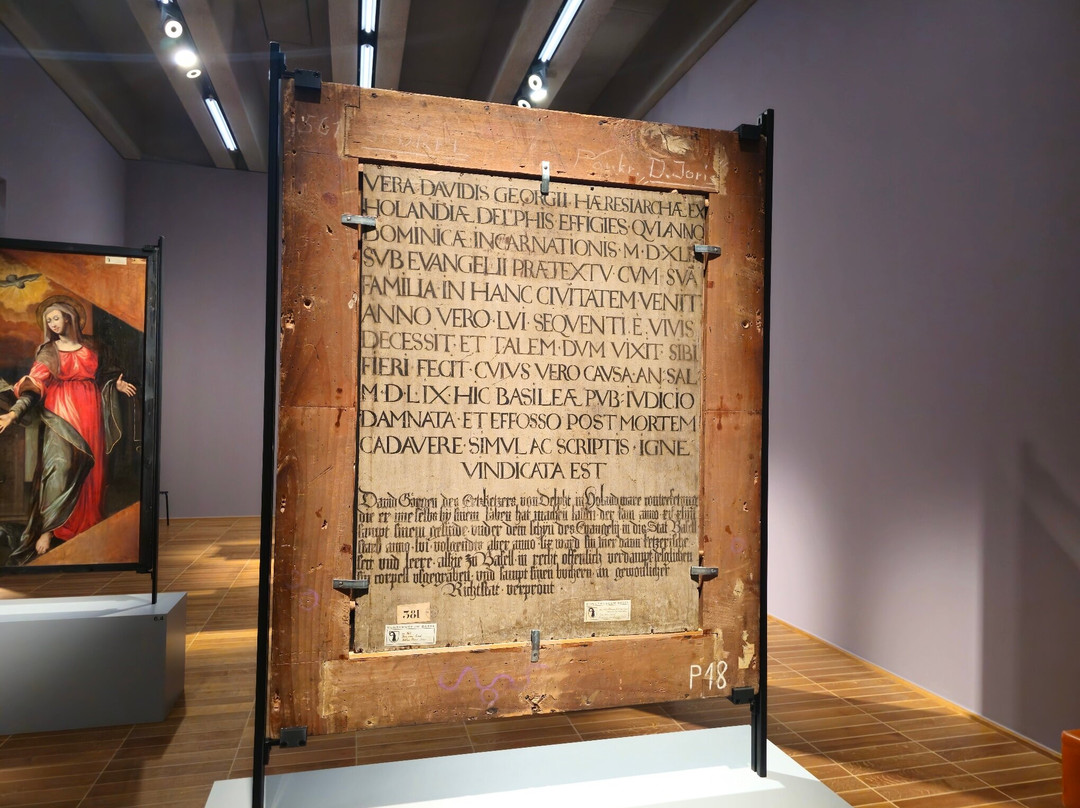 D. Joris
VERA DAVIDIS GEORGII · HÆRESIARCHÆ EX
HOLANDIÆ DELPHIS EFFIGIES · QVI ANNO
DOMINICÆ INCARNATIONIS · M · DXLIIII
SVB EVANGELII PRÆTEXTV · CVM SVA
FAMILIA · IN HANC CIVITATEM VENIT
ANNO VERO · LVI · SEQVENTI E VIVIS
DECESSIT · ET TALEM · DVM VIXIT · SIBI
FIERI FECIT · CVIVS VERO CAVSA · AN · SAL
M · D · LIX · HIC BASILEÆ PVB · IVDICIO
DAMNATA · ET EFFOSSO POST MORTEM
CADAVERE · SIMVL AC SCRIPTIS · IGNE
VINDICATA EST
David Görgen des Ertzketzers von Delpht in Holand ware
die er ime selbs by sinem läben hat machen lassen der kam anno
sampt sinem gesinde under dem schin des Evangelij in die Stat Basell
starb anno lvi volgendts aber anno lix ward sin
sect und leere alhie zu Basell in recht offentlich verdampt
sin corpell ussgegraben und sampt sinen büchern an gewonlicher
Richtstat verprönt
381
P48